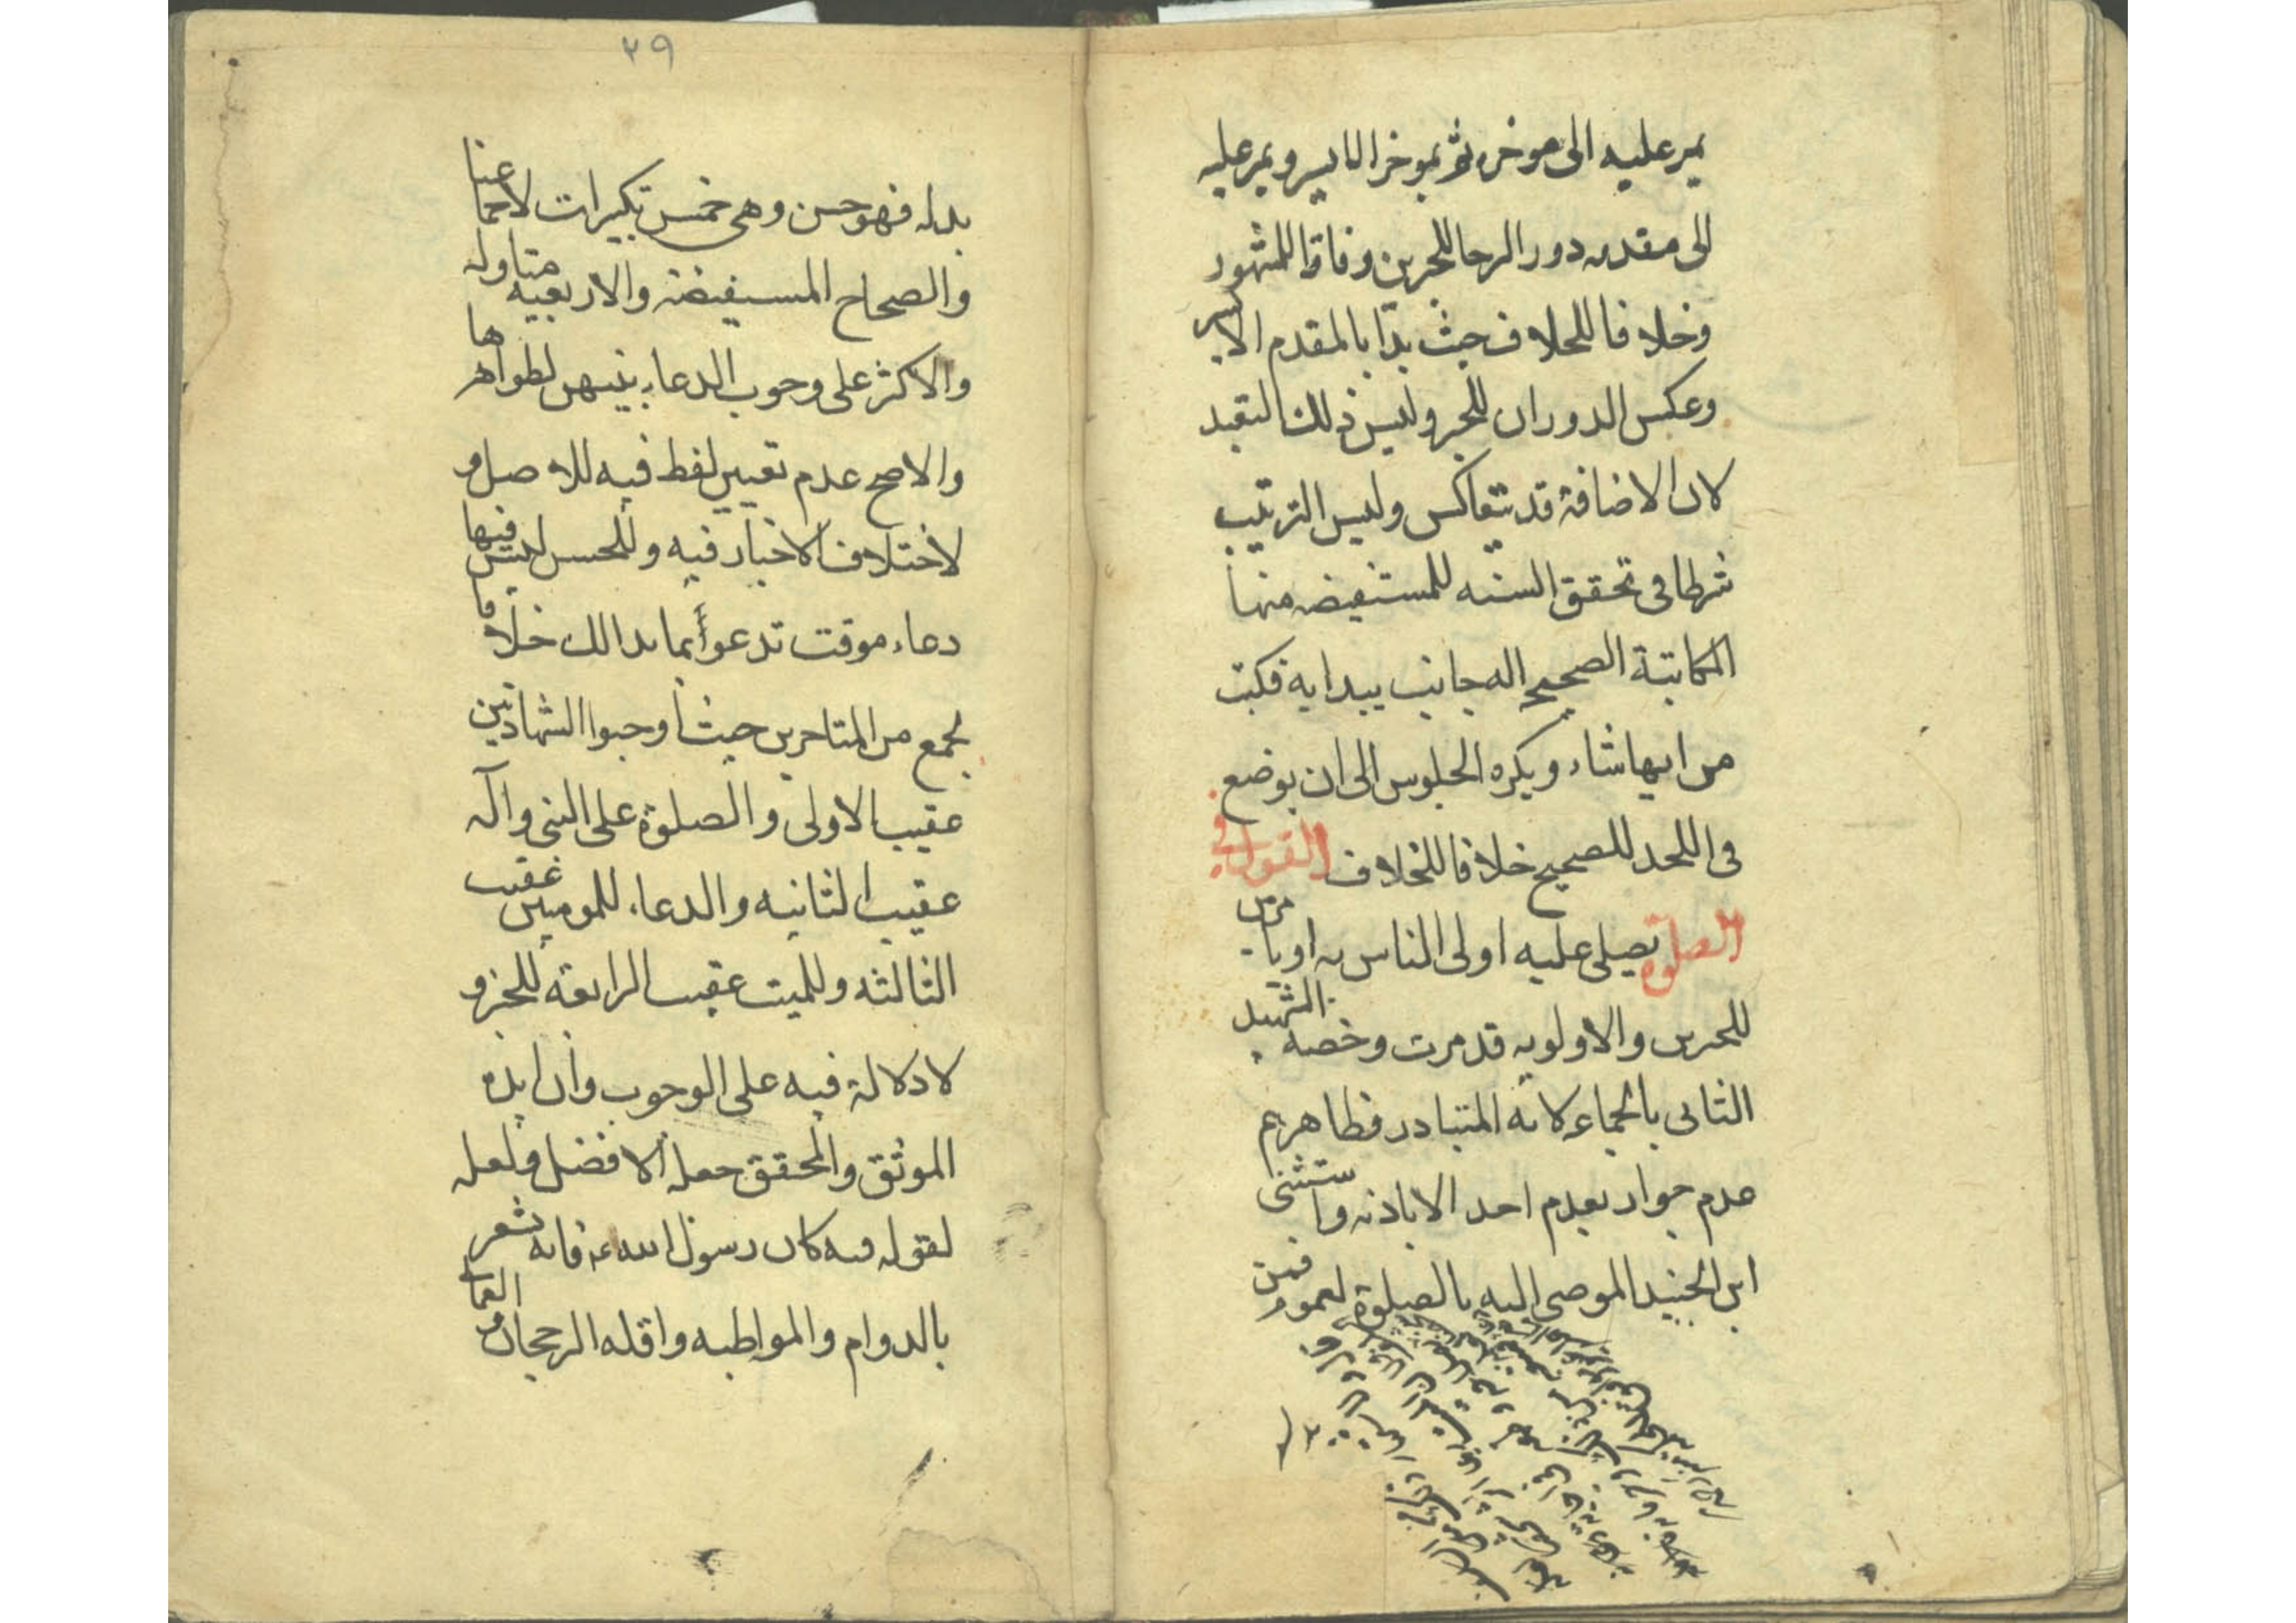 يمر عليه الى موخره ثم بموخر الايسر ويمر عليه
الى مقدمه دور الرحا للخبرين وفاقا للمشهور
وخلافا للخلاف حيث بدأ بالمقدم الايسر
وعكس الدوران للخبر وليس ذلك البعيد
لان الاضافة قد تتعاكس وليس الترتيب
شرطا في تحقق السنه للمستفيضه منها
المكاتبة الصحيح اله جانب يبدا به فكتب
من ايها شاء ويكره الجلوس الى ان يوضع
في اللحد للصحيح خلافا للخلاف القول في
الصلوة يصلى عليه اولى الناس به او يامر من
للخبرين والاولويه قد مرت وخصه الشهيد
الثانى بالجماعه لانه المتبادر فظاهرهم
عدم جواز تقدم احد الا باذنه واستثنى
ابن الجنيد الموصى اليه بالصلوة لعموم فمن
٢٩
بدله فهو حسن وهى خمس تكبيرات لاجماعنا
والصحاح المستفيضة والاربعيه متاوله
والاكثر على وجوب الدعاء بينهن لظواهرها
والاصح عدم تعيين لفظ فيه للاصل و
لاختلاف الاخبار فيه وللحسن ليس فيها
دعاء موقت تدعو أبما بدا لك خلافا
لجمع من المتاخرين حيث اوجبوا الشهادتين
عقيب الاولى والصلوة على النبى وآله
عقيب الثانيه والدعاء للمومنين عقيب
الثالثه وللميت عقيب الرابعة للخبر و
لا دلالة فيه على الوجوب وان ايده
الموثق والمحقق جعله الافضل ولعله
لقوله فيه كان رسول الله فانه يشعر
بالدوام والمواظبه واقله الرجحان و